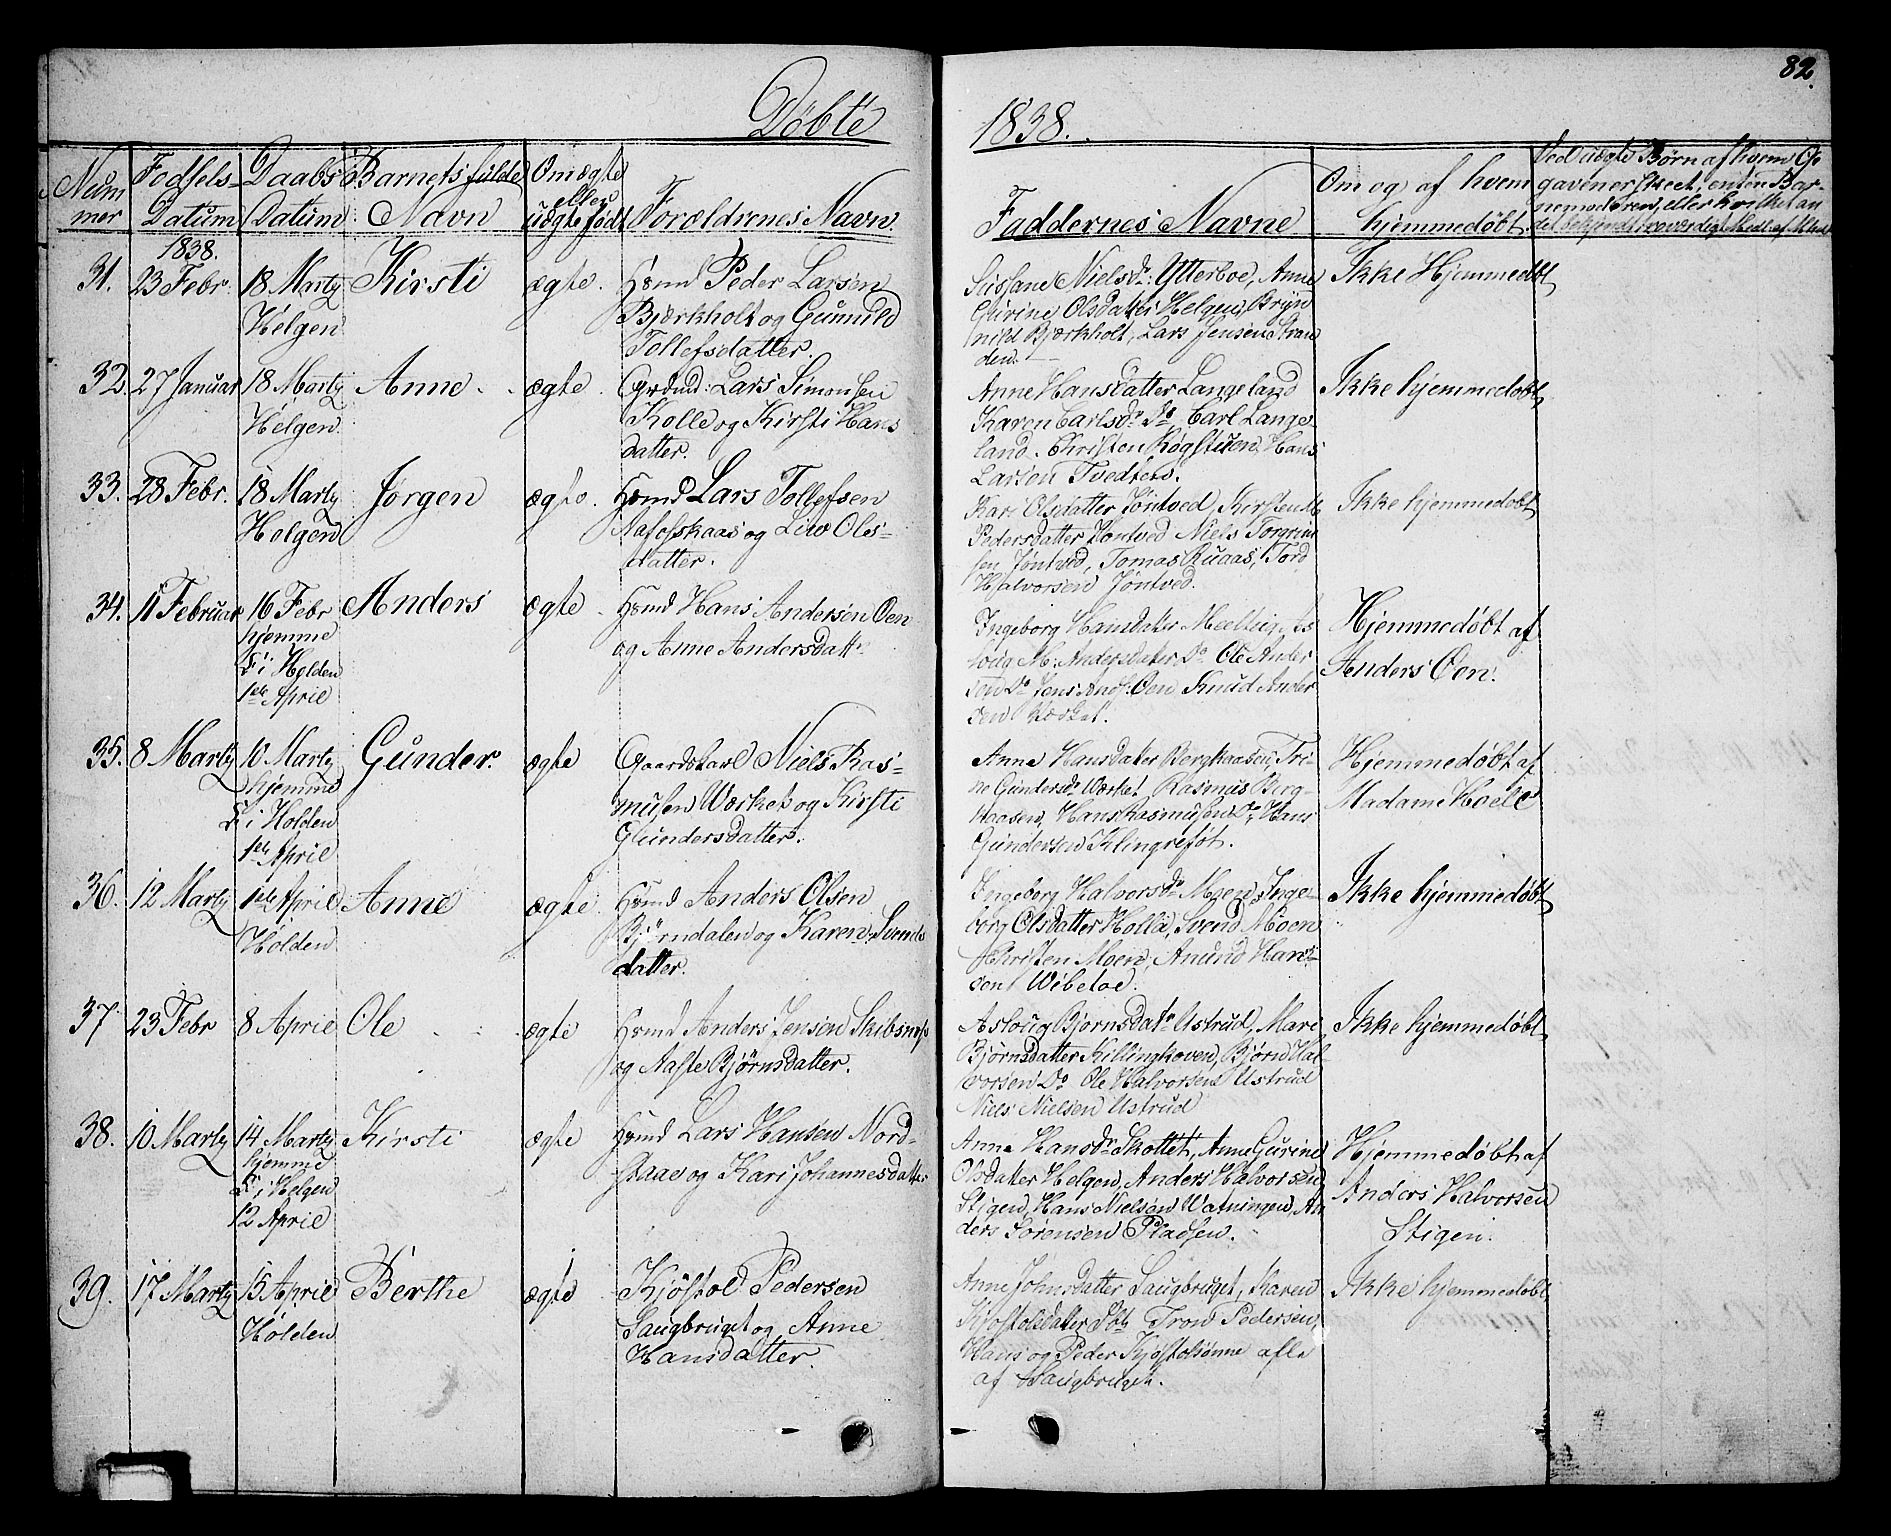 Døbte
1838.
82.
Num
mer
Fødsels-
Datum
Daabs
Datum
Barnets fulde
Navn
Om ægte
eller
uægte født
Forældrenes Navn.
Faddernes Navne
Om og af hvem
hjemmedøbt
Ved uægte Børn af hvem Op
gaven er skeet, enten Bar-
nemoderen, eller hvilket an
1838.
31. 23 Febr. 18 Marty Kirsti ægte. Hsmd Peder Larsen
Helgen Bjærkholt og Gunnild
Tollefsdatter.
Susane Nielsdr. Ytterboe, Anne
Gurine Olsdatter Helgen, Bryn
nild Bjærkholt, Lars Jensen Stran
den.
Ikke Hjemmedøbt
32. 27 Januar 18 Marty Anne ægte. Grdmd: Lars Simonsen
Helgen. Kolle og Kirsti Hans
datter.
Anne Hansdatter Langeland
Karen Carlsdr. Do, Carl Lange
land, Christen Røgstuen, Hans
Larsen Tvedten.
Ikke hjemmedøbt
33. 28 Febr. 18 Marty Jørgen ægte. Hsmd Lars Tollefsen
Helgen og Live Ols-
datter.
Kari Olsdatter Jøntved, Kirsten
Pedersdatter Jøntved Niels Torgrim
sen Jøntved, Tomas Ruaas, Tord
Halvorsen Jøntved.
Ikke hjemmedøbt
34. 11 Februar 16 Febr Anders ægte. Hsmd Hans Andersen Øen
hjemme og Anne Andersdattr
F. i Holden
1ste April
Ingeborg Hansdatter Melteig, As
loug M: Andersdatter Do Ole Ander
sen Do Jens Ands: Øen Knud Ander
sen Værket.
Hjemmedøbt af
Anders Øen.
35. 8 Marty 10 Marty Gunder. ægte Gaardskarl Niels Ras-
hjemme musen Værket og Kirsti
F. i Holden Gundersdatter.
1ste April
Anne Hansdatter Berghaasen, Tri-
ne Gundersdr Værket Rasmus Berg-
haasen, Hans Rasmusen Do, Hans
Gundersen Klingrefot.
Hjemmedøbt af
Madame Hoell
36. 12 Marty 1ste April Anne ægte. Hsmd Anders Olsen
Holden Bjørndalen og Karen Svends
datter.
Ingeborg Halvorsdr Moen, Inge-
borg Olsdatter Holla, Svend Moen
Christen Moen, Anund Han-
sen Wibetoe.
Ikke hjemmedøbt
37 23 Febr 8 April Ole ægte Hsmd Anders Jensen Skibsnæs
og Aaste Bjørnsdatter.
Asloug Bjørnsdatr Ustrud, Mari
Bjørnsdatter Killinghoven, Bjørn Hal-
vorsen Do Ole Halvorsen Ustrud
Niels Nielsen Ustrud
Ikke hjemmedøbt
38. 10 Marty 14 Marty Kirsti ægte Hsmd Lars Hansen Nord-
hjemme skaae og Kari Johannesdatter
F. i Helgen
12 April
Anne Hansdr Skottet, Anne Gurine
Olsdatter Helgen, Anders Halvorsen
Stigen, Hans Nielsen Watningen, An
ders Sørensen Pladsen.
Hjemmedøbt af
Anders Halvorsen
Stigen.
39. 17 Marty 15 April Berthe ægte Kjøstol Pedersen
Holden Saugbruget og Anne
Hansdatter.
Anne Johnsdatter Saugbruget, Karen
Kjøstolsdatter Tron Pedersen,
Hans og Peder Kjøstolsønne alle
af Saugbruget.
Ikke hjemmedøbt